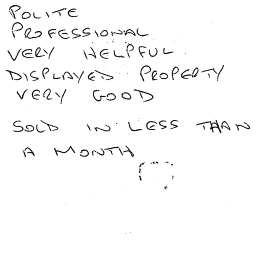 POLITE
PROFESSIONAL
VERY HELPFUL.
DISPLAYED PROPERTY
VERY GOOD
SOLD IN LESS THAN
A MONTH